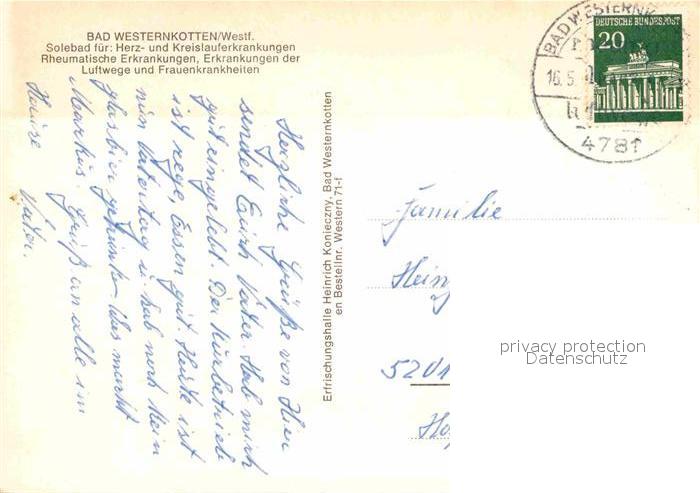 BAD WESTERNKOTTEN/Westf.
Solebad für: Herz- und Kreislauferkrankungen
Rheumatische Erkrankungen, Erkrankungen der
Luftwege und Frauenkrankheiten
Herzliche Grüße von Hier
sendet Euch Vater. Hab mich
gut eingelebt. Der Kurbetrieb
ist rege, Essen gut. Heute ist
nun Vatertag u. hab noch kein
glas bier getrunken. Was macht
Markus. Gruß an alle im
Hause Vater.
Erfrischungshalle Heinrich Konieczny, Bad Westernkotten
en Bestellnr. Western 71-f
BAD WESTERNK
16.5.
4781
DEUTSCHE BUNDESPOST
20
Familie
Hein
5201
Ho
privacy protection
Datenschutz